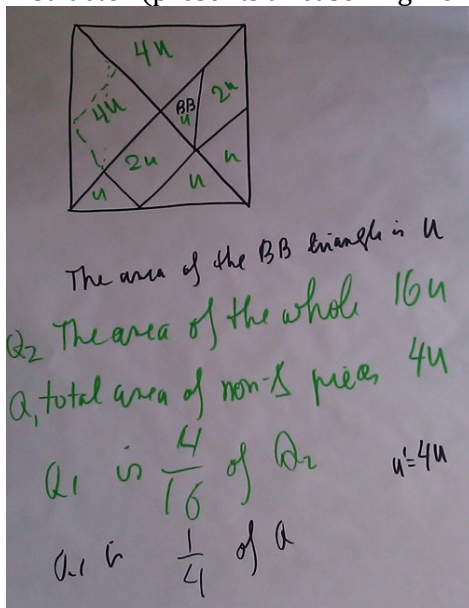 4u
4u
BB
u
2u
2u
u
u
u
The area of the BB triangle is u
Q2 The area of the whole 16u
Q1 total area of non-Δ pieces 4u
Q1 is 4/16 of Q2
u'=4u
Q1 is 1/4 of Q